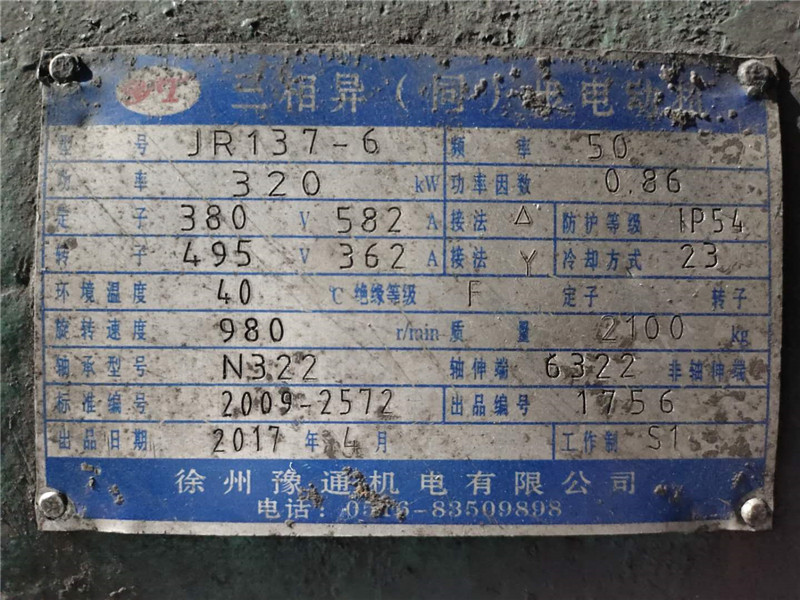 三相异(同)步电动机
型 号 JR137-6 频 率 50
功 率 320 kW 功率因数 0.86
定 子 380 V 582 A 接法 △ 防护等级 IP54
转 子 495 V 362 A 接法 Y 冷却方式 23
环境温度 40 ℃ 绝缘等级 F 定子 转子
旋转速度 980 r/min 质 量 2100 kg
轴承型号 N322 轴伸端 6322 非轴伸端
标准编号 2009-2572 出品编号 1756
出品日期 2017 年 4 月 工作制 S1
徐州豫通机电有限公司
电话:0516-83509898